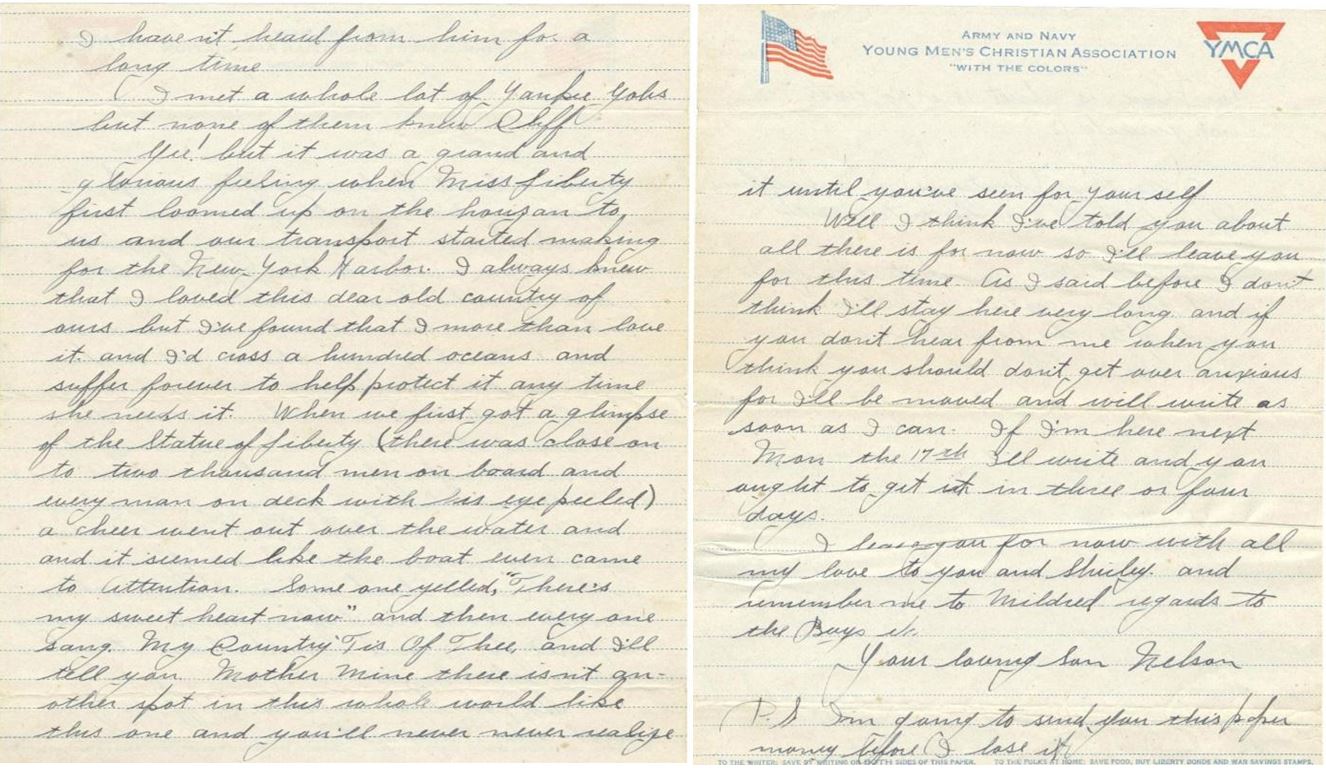 I haven't heard from him for a
long time
I met a whole lot of Yankie Gobs
but none of them knew Cliff
Gee! but it was a grand and
glorious feeling when Miss Liberty
first loomed up on the horizan to
us and our transport started making
for the New York Harbor. I always knew
that I loved this dear old country of
ours but I've found that I more than love
it and I'd cross a hundred oceans and
suffer forever to help protect it any time
she needs it. When we first got a glimpse
of the Statue of Liberty (there was close on
to two thousand men on board and
every man on deck with his eye peeled)
a cheer went out over the water and
and it seemed like the boat even came
to attention. Some one yelled, "There's
my sweet heart now" and then every one
sang My Country 'Tis Of Thee, and I'll
tell you Mother Mine there isn't an-
other spot in this whole world like
this one and you'll never never realize
ARMY AND NAVY
YOUNG MEN'S CHRISTIAN ASSOCIATION
"WITH THE COLORS"
YMCA
it until you've seen for yourself
Well I think I've told you about
all there is for now so I'll leave you
for this time. As I said before I don't
think I'll stay here very long and if
you don't hear from me when you
think you should don't get over anxious
for I'll be moved and will write as
soon as I can. If I'm here next
Mon the 17th I'll write and you
ought to get it in three or four
days.
I leave you for now with all
my love to you and Shirley and
remember me to Mildred regards to
the Boys
Your loving Son Nelson
P.S I'm going to send you this paper
money before I lose it
TO THE WRITER: SAVE BY WRITING ON BOTH SIDES OF THIS PAPER. TO THE FOLKS AT HOME: SAVE FOOD, BUY LIBERTY BONDS AND WAR SAVINGS STAMPS.